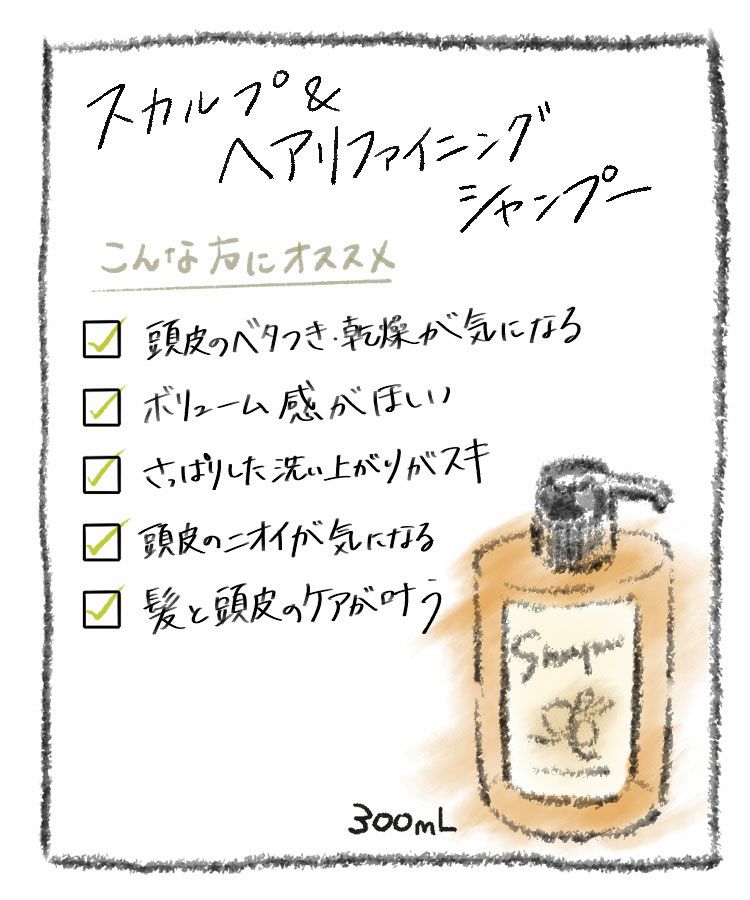 スカルプ&
ヘアリファイニング
シャンプー
こんな方にオススメ
頭皮のベタつき・乾燥が気になる
ボリューム感がほしい
さっぱりした洗い上がりがスキ
頭皮のニオイが気になる
髪と頭皮のケアが叶う
300mL